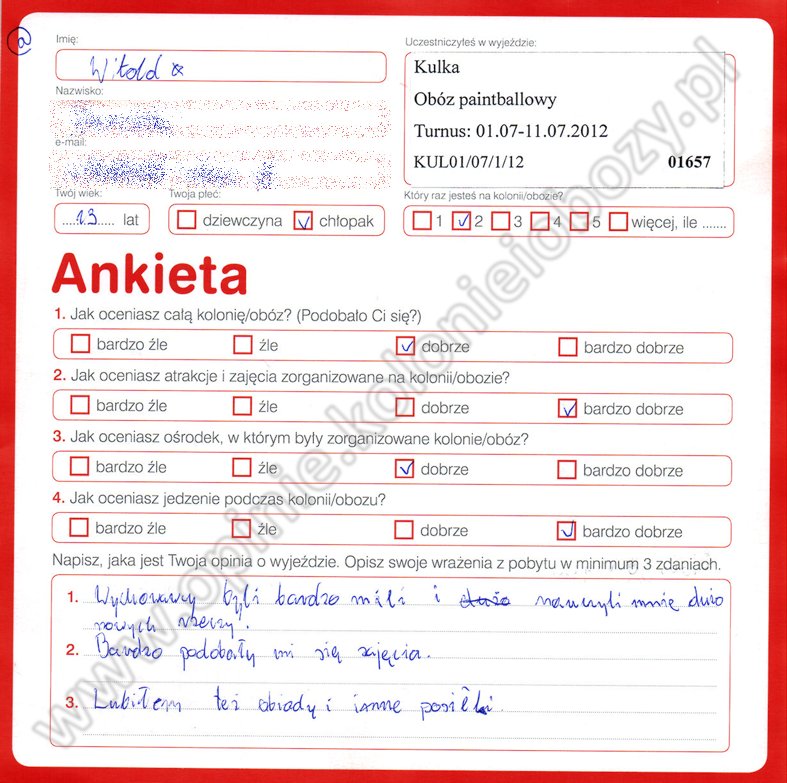 a
Imię:
Witold
Uczestniczyłeś w wyjeździe:
Kulka
Obóz paintballowy
Turnus: 01.07-11.07.2012
KUL01/07/1/12 01657
Nazwisko:
e-mail:
Twój wiek:
13 lat
Twoja płeć:
dziewczyna chłopak
Który raz jesteś na kolonii/obozie?
1 2 3 4 5 więcej, ile .......
Ankieta
1. Jak oceniasz całą kolonię/obóz? (Podobało Ci się?)
bardzo źle źle dobrze bardzo dobrze
2. Jak oceniasz atrakcje i zajęcia zorganizowane na kolonii/obozie?
bardzo źle źle dobrze bardzo dobrze
3. Jak oceniasz ośrodek, w którym były zorganizowane kolonie/obóz?
bardzo źle źle dobrze bardzo dobrze
4. Jak oceniasz jedzenie podczas kolonii/obozu?
bardzo źle źle dobrze bardzo dobrze
Napisz, jaka jest Twoja opinia o wyjeździe. Opisz swoje wrażenia z pobytu w minimum 3 zdaniach.
1. Wychowawcy byli bardzo mili i dużo nauczyli mnie dużo
nowych rzeczy.
2. Bardzo podobały mi się zajęcia.
3. Lubiłem też obiady i inne posiłki.
www.opinie.kolonieiobozy.pl